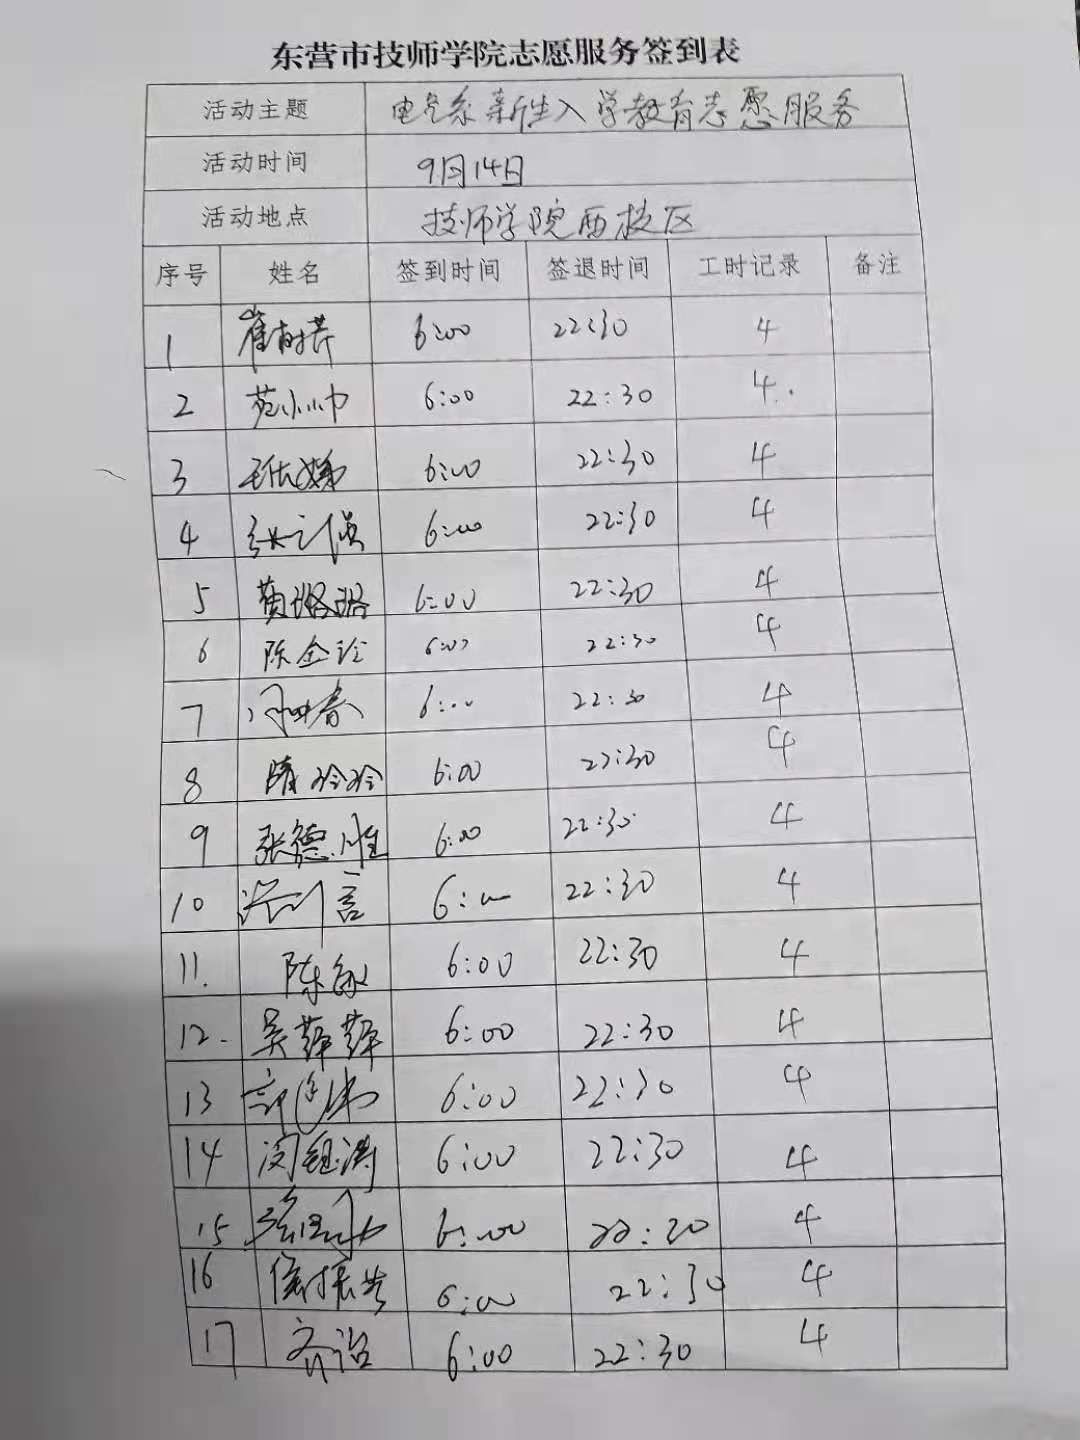 东营市技师学院志愿服务签到表
活动主题 电气系新生入学教育志愿服务
活动时间 9月14日
活动地点 技师学院西校区
序号 姓名 签到时间 签退时间 工时记录 备注
1 崔 6:00 22:30 4
2 6:00 22:30 4.
3 6:00 22:30 4
4 张 6:00 22:30 4
5 黄璐璐 6:00 22:30 4
6 陈金 6:00 22:30 4
7 春 6:00 22:30 4
8 隋玲玲 6:00 22:30 4
9 张德胜 6:00 22:30 4
10 6:00 22:30 4
11. 陈敏 6:00 22:30 4
12. 吴萍萍 6:00 22:30 4
13 6:00 22:30 4
14 6:00 22:30 4
15 6:00 22:20 4
16 6:00 22:30 4
17 齐 6:00 22:30 4